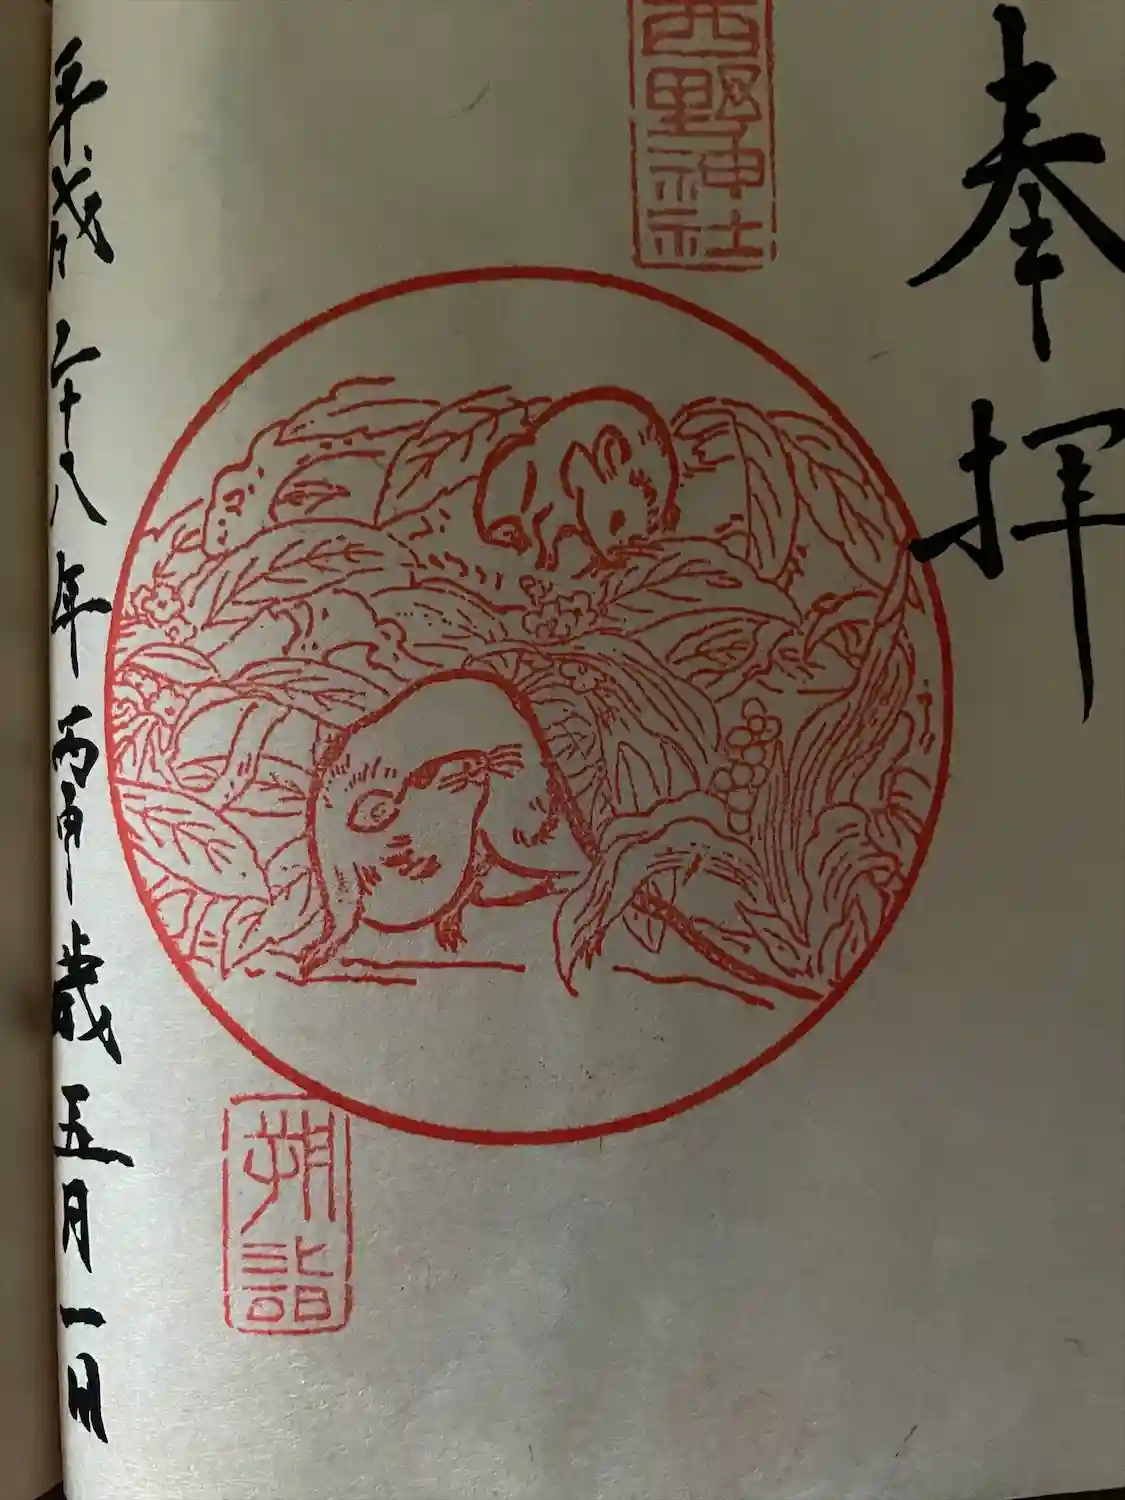 奉拝
西野神社
朔詣
平成廿八年丙申歳五月一日